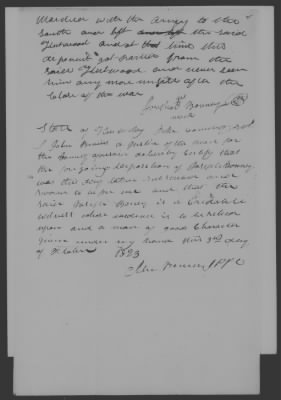 Marched with the Army to the
South and left the said
Fleetwood and at that time this
deponent got parted from the
said Fleetwood and never seen
him any more untill after the
close of the war
Joseph Bonney
mark
State of
I John Bonney a Justice of the peace for
the County aforesaid do hereby Certify that
the foregoing deposition of Joseph Bonney
was this day taken Subscribed and
Sworn to before me and that the
said Joseph Boney is a Credable
witness whose evidence is to be relied
upon and a man of good Character
Given under my hand this 3rd day
of 1823
John Bonney JPFC